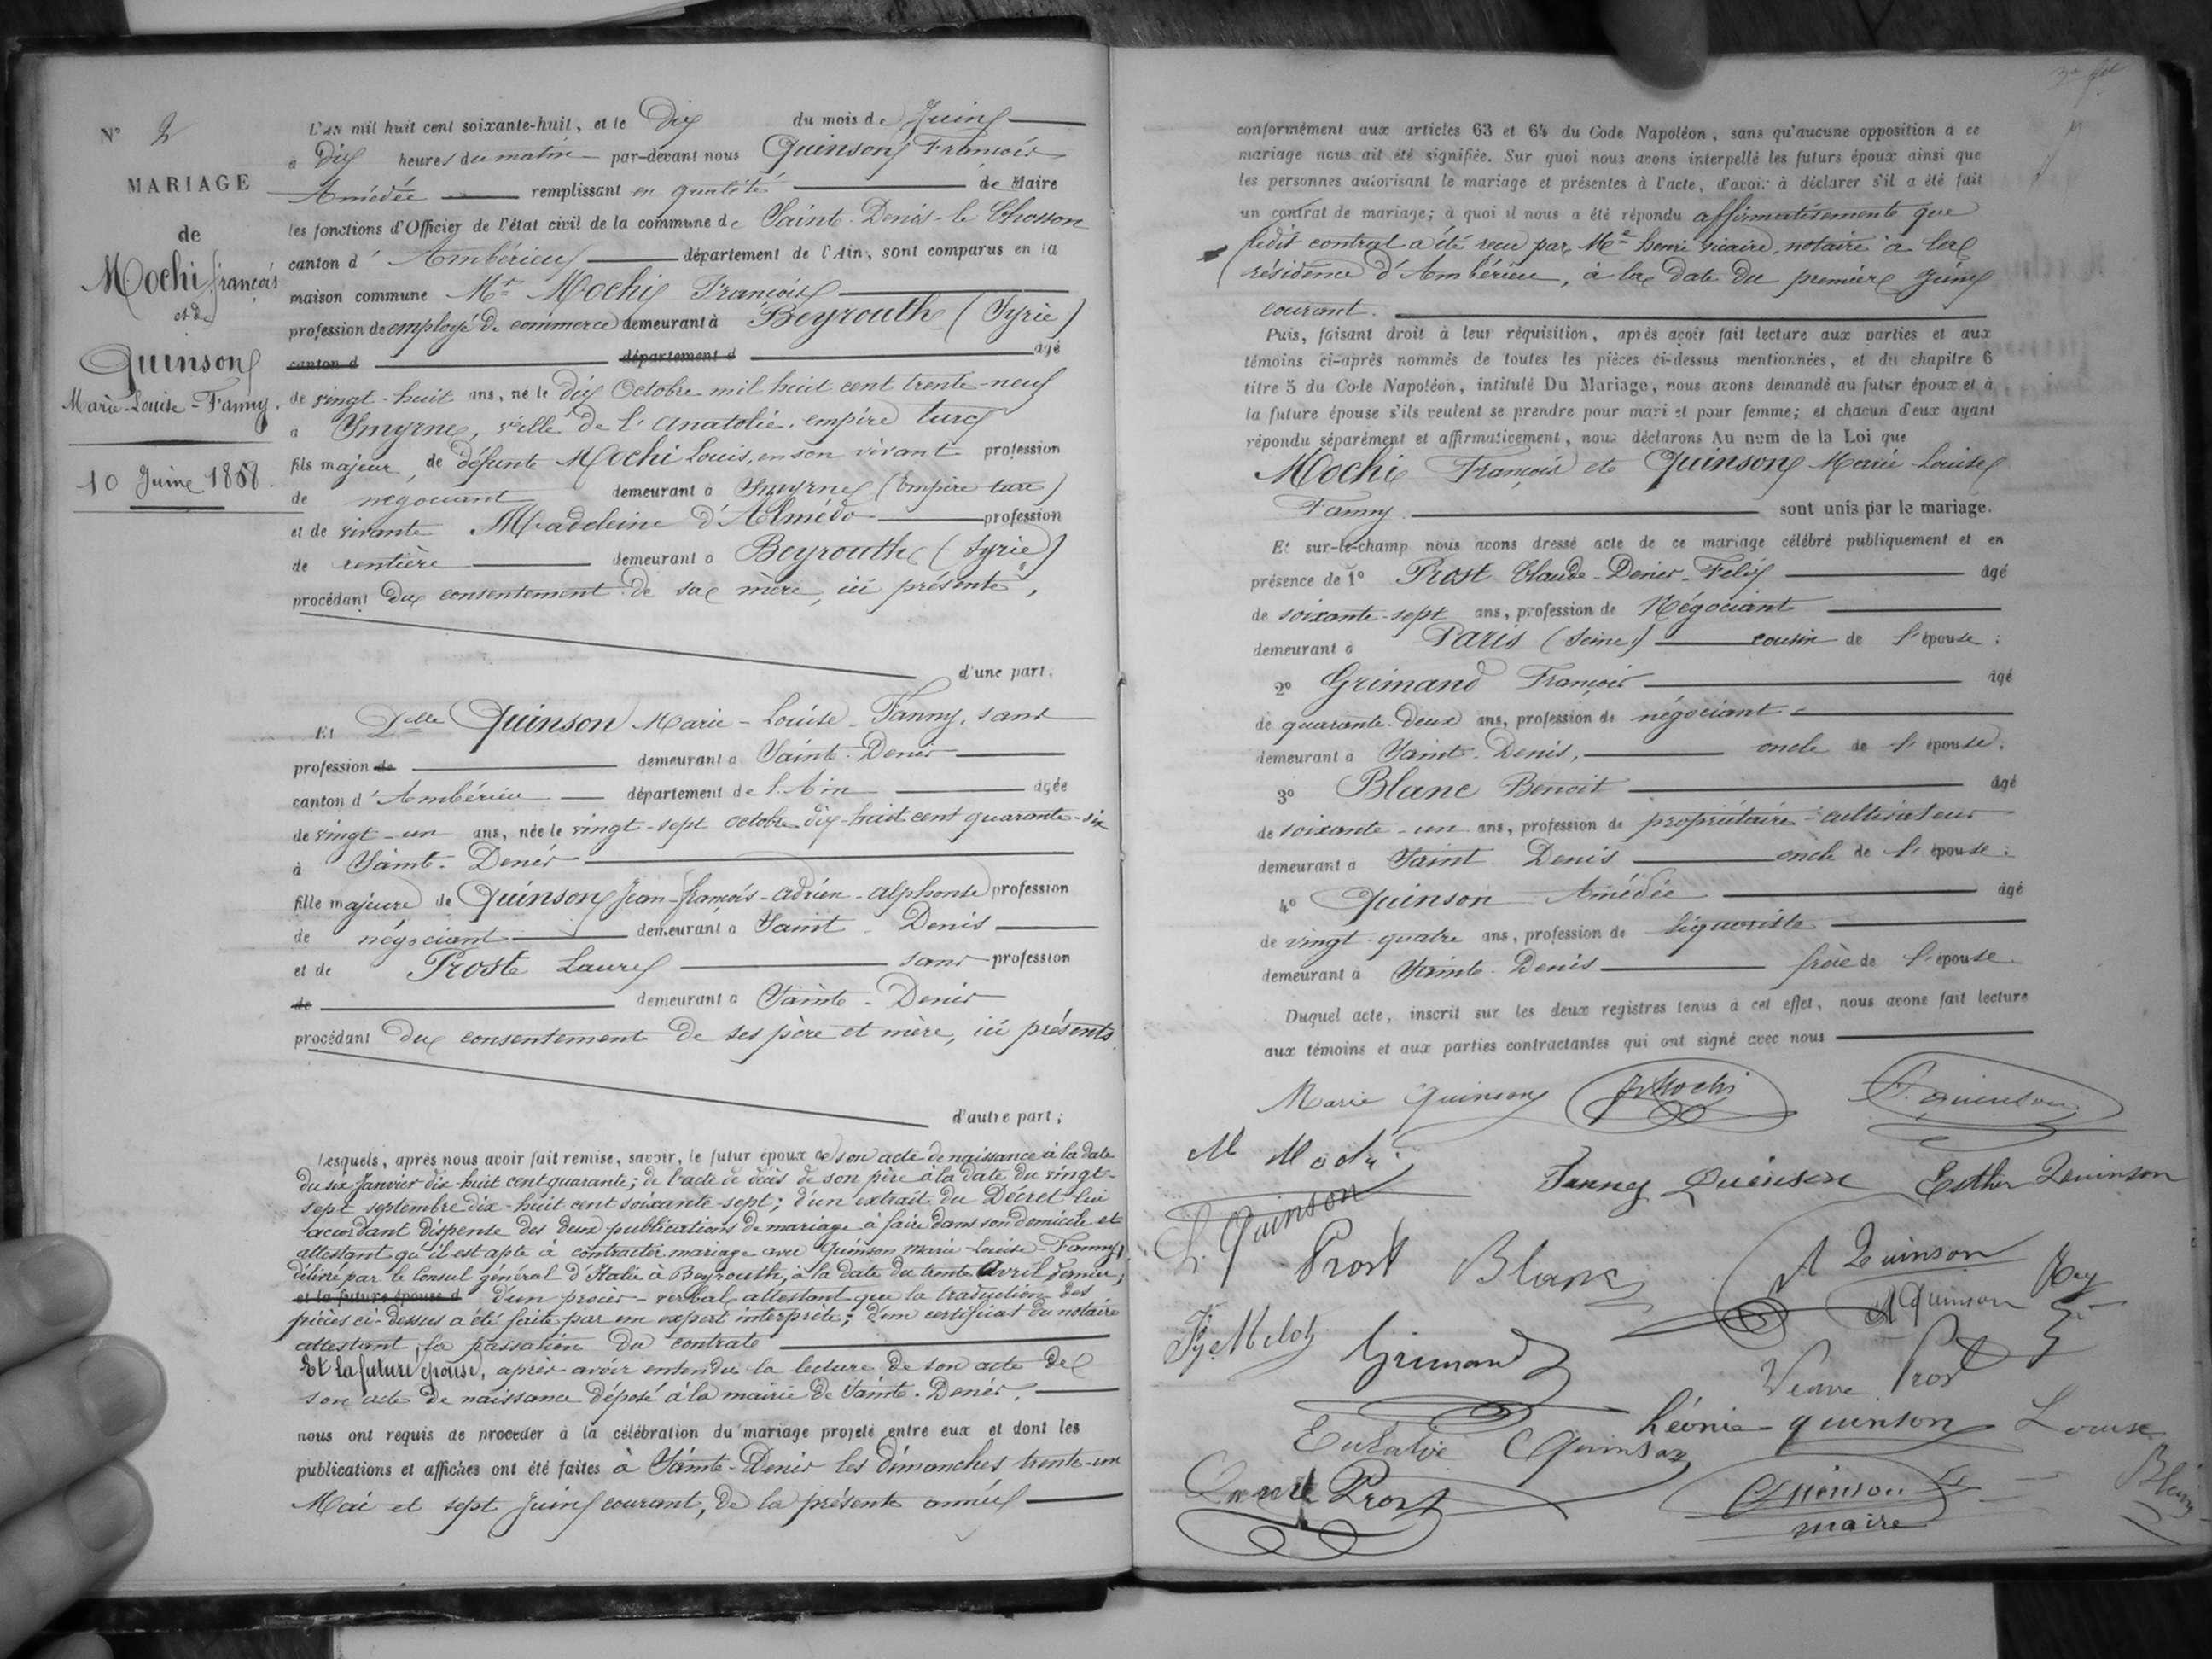 N° 2
MARIAGE
de
Mochi françois
et de
Quinson
Marie-Louise-Fanny.
10 Juin 1868.
L'an mil huit cent soixante-huit, et le Dix du mois de Juin
à Dix heures du matin par-devant nous Quinson François
Amédée remplissant en qualité de Maire
les fonctions d'Officier de l'état civil de la commune de Saint-Denis-le Chosson
canton d'Ambérieu département de l'Ain, sont comparus en la
maison commune Mr Mochi François
profession de employé de commerce demeurant à Beyrouth (Syrie)
canton d département d agé
de vingt-huit ans, né le dix Octobre mil huit cent trente-neuf
a Smyrne, ville de l'anatolie, empire turc
fils majeur de défunt Mochi Louis, en son vivant profession
de négociant demeurant a Smyrne (Empire turc)
et de vivante Madeleine d'Almédo profession
de rentière demeurant a Beyrouth (Syrie)
procédant du consentement de sa mère, ici présente,
d'une part,
Et Delle Quinson Marie-Louise-Fanny, sans
profession de demeurant a Saint-Denis
canton d'Ambérieu département de l'Ain agée
de vingt-un ans, née le vingt-sept octobre dix-huit cent quarante-six
à Saint-Denis
fille majeure de Quinson Jean-françois-adrien-alphonse profession
de négociant demeurant a Saint-Denis
et de Prost Laure sans profession
de demeurant a Saint-Denis
procédant du consentement de ses père et mère, ici présents
d'autre part;
Lesquels, après nous avoir fait remise, savoir, le futur époux de son acte de naissance à la date
du six Janvier dix-huit cent quarante; de l'acte de décès de son père à la date du vingt-
sept septembre dix-huit cent soixante-sept; d'un extrait du Décret lui
accordant dispense des deux publications de mariage à faire dans son domicile et
attestant qu'il est apte à contracter mariage avec Quinson Marie-Louise-Fanny,
délivré par le Consul général d'Italie à Beyrouth, à la date du trente Avril dernier;
et la future épouse d d'un procès-verbal attestant que la traduction des
pièces ci-dessus a été faite par un expert interprète; d'un certificat du notaire
attestant la passation du contrat
Et la future épouse, après avoir entendu la lecture de son acte de
son acte de naissance déposé à la mairie de Saint-Denis,
nous ont requis de proceder à la célébration du mariage projeté entre eux et dont les
publications et affiches ont été faites à Saint-Denis les dimanches trente-un
Mai et sept Juin courant, de la présente année
conformément aux articles 63 et 64 du Code Napoléon, sans qu'aucune opposition a ce
mariage nous ait été signifiée. Sur quoi nous avons interpellé les futurs époux ainsi que
les personnes autorisant le mariage et présentes à l'acte, d'avoir à déclarer s'il a été fait
un contrat de mariage; à quoi il nous a été répondu affirmativement que
ledit contrat a été reçu par Me henri vicaire, notaire à la
résidence d'Ambérieu, à la date du premier Juin
courant.
Puis, faisant droit à leur réquisition, après avoir fait lecture aux parties et aux
témoins ci-après nommés de toutes les pièces ci-dessus mentionnées, et du chapitre 6
titre 5 du Code Napoléon, intitulé Du Mariage, nous avons demandé au futur époux et à
la future épouse s'ils veulent se prendre pour mari et pour femme; et chacun d'eux ayant
répondu séparément et affirmativement, nous déclarons Au nom de la Loi que
Mochi François et Quinson Marie-Louise
Fanny sont unis par le mariage.
Et sur-le-champ nous avons dressé acte de ce mariage célébré publiquement et en
présence de 1° Prost Claude-Denis-Félix âgé
de soixante-sept ans, profession de Négociant
demeurant à Paris (Seine) cousin de l'épouse;
2° Grimand François âgé
de quarante-deux ans, profession de négociant
demeurant a Saint-Denis, oncle de l'épouse;
3° Blanc Benoit âgé
de soixante-un ans, profession de propriétaire-cultivateur
demeurant à Saint Denis oncle de l'épouse;
4° Quinson Amédée âgé
de vingt-quatre ans, profession de liquoriste
demeurant à Saint-Denis frère de l'épouse
Duquel acte, inscrit sur les deux registres tenus à cet effet, nous avons fait lecture
aux témoins et aux parties contractantes qui ont signé avec nous
Marie Quinson F Mochi Quinson
M Mochi Fanny Quinson Esther Quinson
L. Quinson Prost Blanc A Quinson
A Quinson Rey
Grimand
Veuve Prost
Eulalie Quinson Léonie quinson Louise
Blanc
Prost Quinson
maire